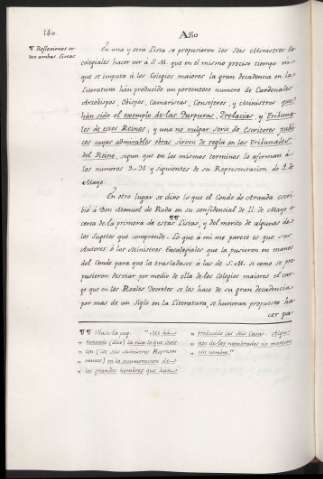 180. Año
¶ Reflexiones so-
bre ambas listas
En una y otra Lista se propusieron los Sres Ministros Ex-
colegiales hacer ver á S. M. que en el mismo preciso tiempo en
que se imputa á los Colegios maiores la gran decadencia en la
Literatura han producido un portentoso numero de Cardenales
Arzobispos, Obispos, Camaristas, Consejeros, y Ministros que
han sido el exemplo de las Purpuras, Prelacías, y Tribuna-
les de estos Reinos, y una no vulgar serie de Escritores cu-
yas admirables obras sirven de regla en los Tribunales
del Reino, segun que en los mismos terminos lo afirman á
los numeros y siguientes de su Representacion de 1º de
Mayo.
En otro lugar se dixo lo que el Conde de Aranda escri-
bió á Don Manuel de Roda en su confidencial de 11 de Mayo a-
cerca de la primera de estas Listas, y del merito de algunos de
los Sujetos que comprende. Lo que á mi me parece es que
Autores ó los Ministros Excolegiales que la pusieron en manos
del Conde para que la trasladase á las de S. M. si como se pro-
pusieron desviar por medio de ella de los Colegios maiores el car-
go que en los Reales Decretos se les hace de su gran decadencia
por mas de un siglo en la Literatura, se hubieran propuesto ha-
cer pa-
¶¶ Vease la pag.
los grandes hombres que han
producido los seis Cole.
nos de los nombrados no merecen
ese nombre"